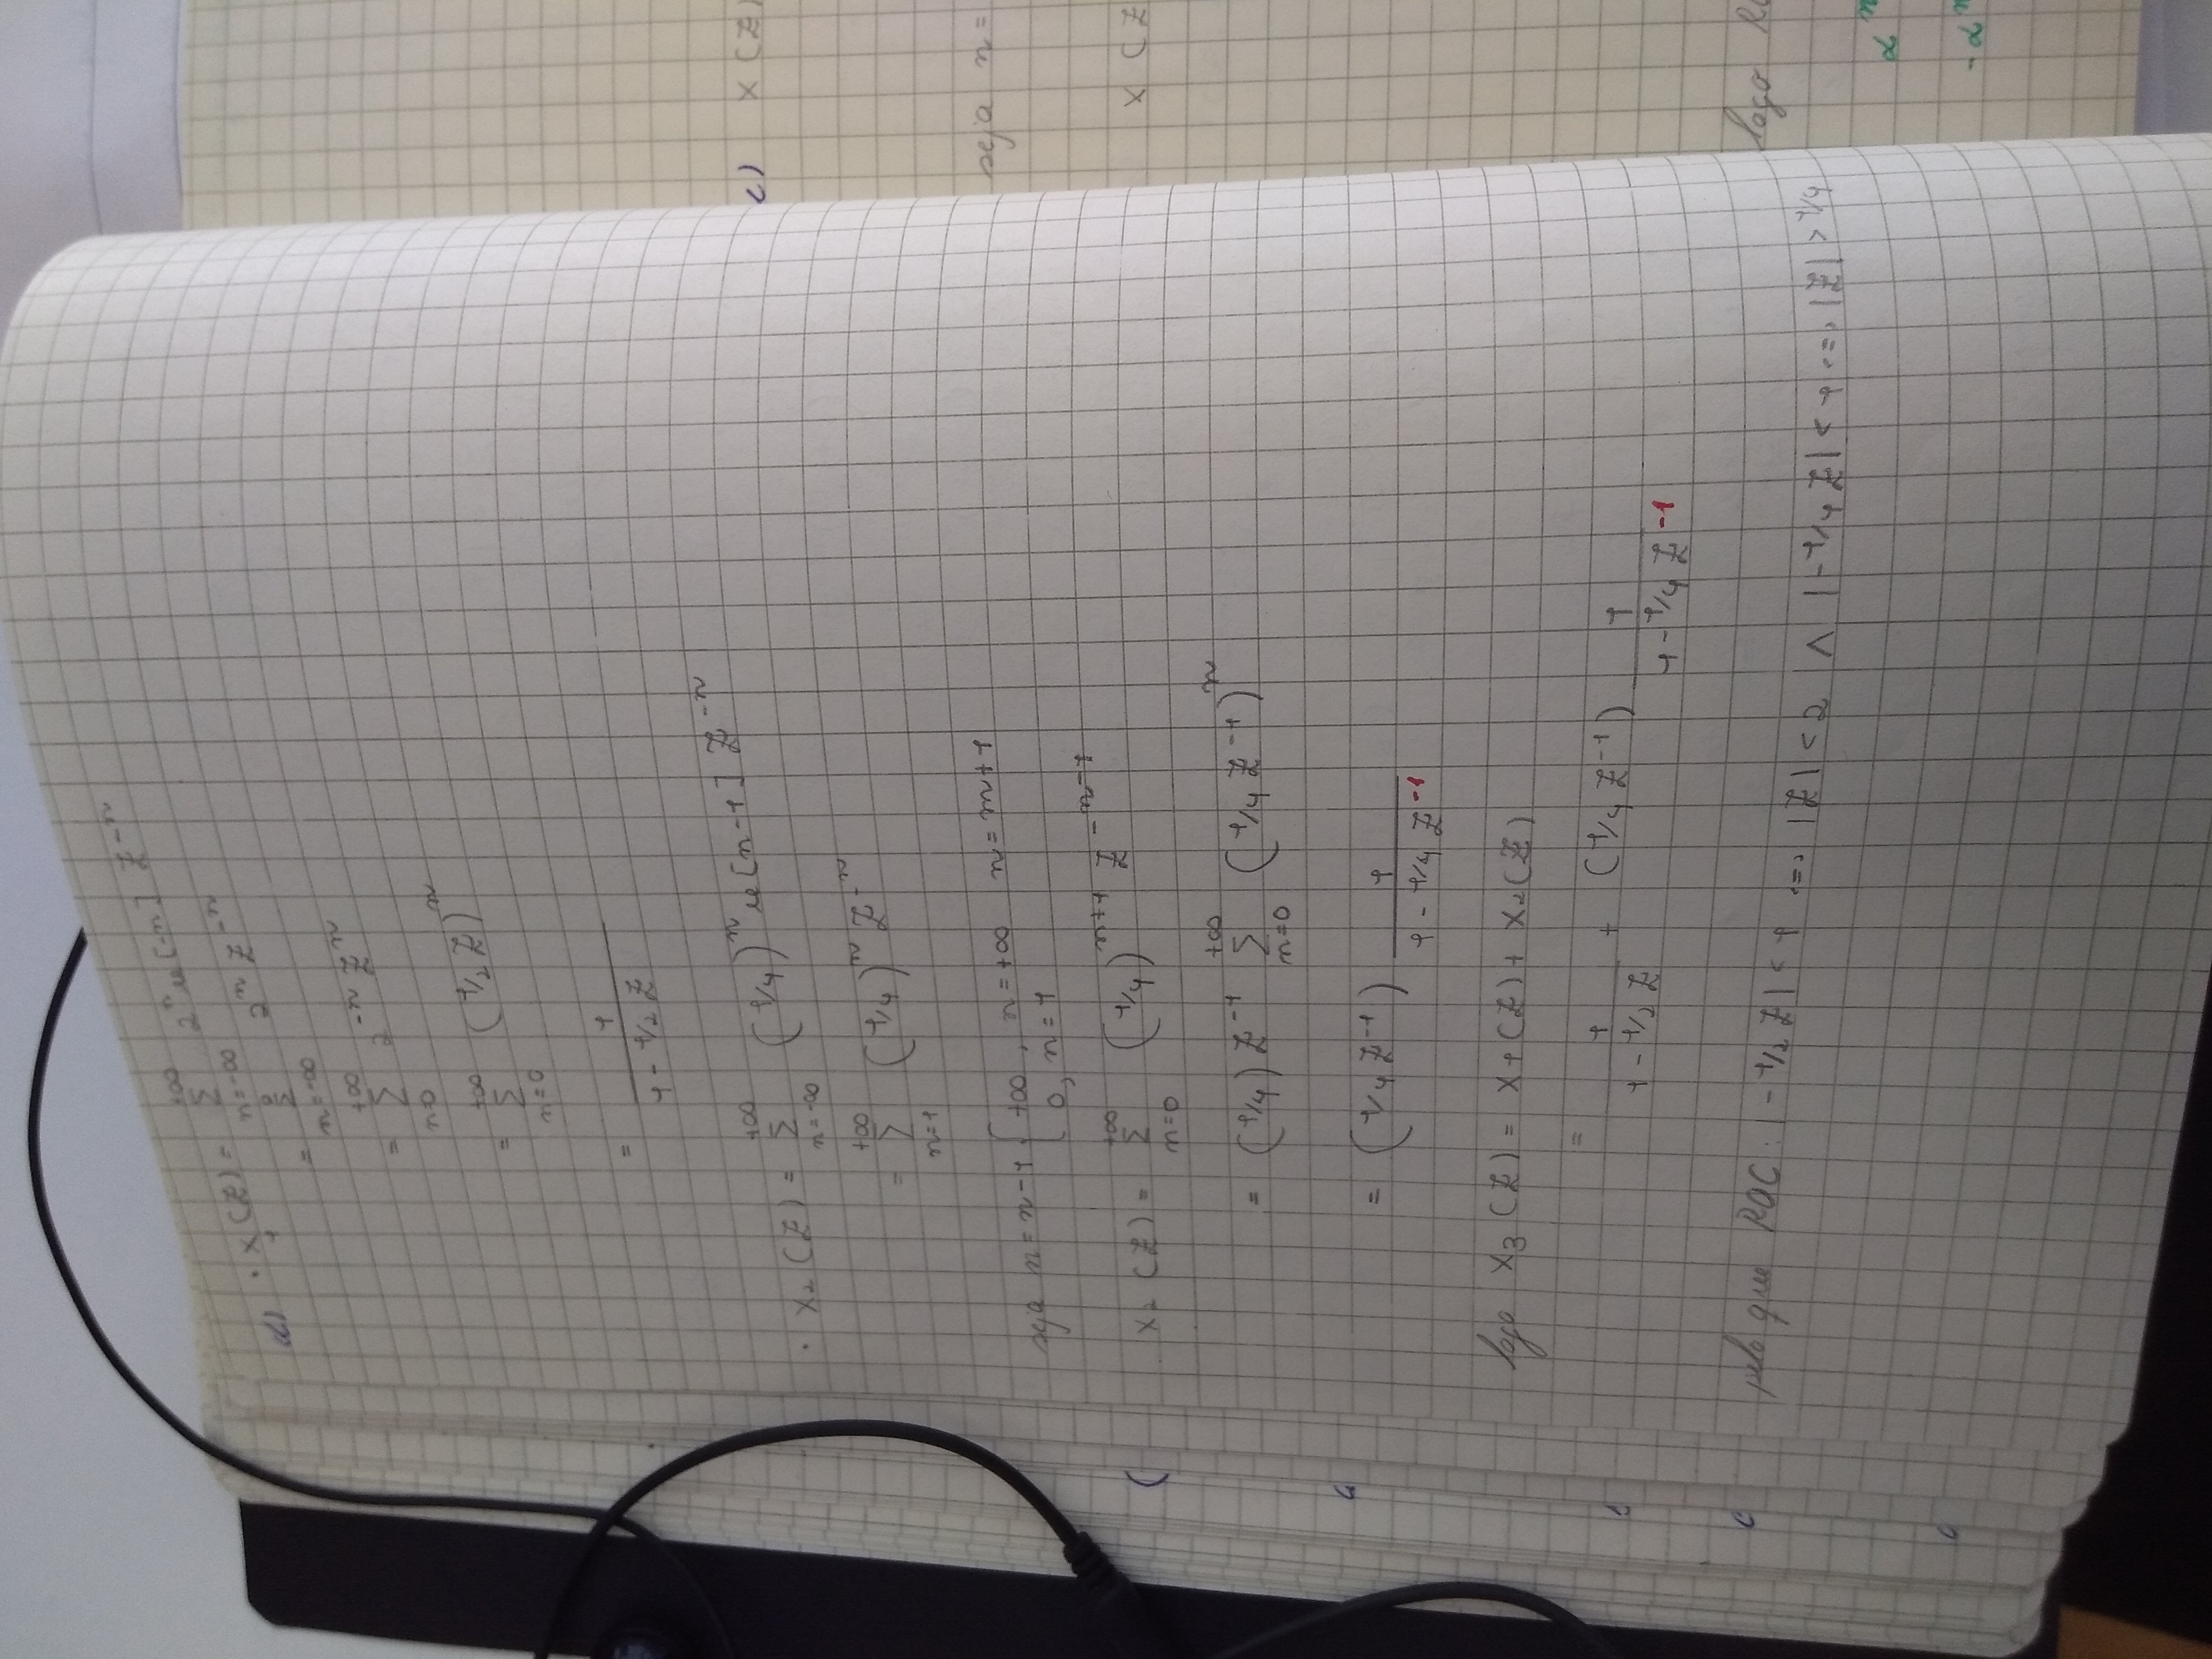 d) • X₁(Z) = Σ_{n=-∞}^{+∞} 2ⁿ u[-n] Z⁻ⁿ
= Σ_{n=-∞}^{0} 2ⁿ Z⁻ⁿ
= Σ_{n=0}^{+∞} 2⁻ⁿ Zⁿ
= Σ_{n=0}^{+∞} (1/2 Z)ⁿ
= 1 / (1 - 1/2 Z)
• X₂(Z) = Σ_{n=-∞}^{+∞} (1/4)ⁿ u[n-1] Z⁻ⁿ
= Σ_{n=1}^{+∞} (1/4)ⁿ Z⁻ⁿ
seja m = n-1 { +∞, n=+∞ n=m+1
0, n=1
X₂(Z) = Σ_{m=0}^{+∞} (1/4)^{m+1} Z^{-m-1}
= (1/4) Z⁻¹ Σ_{m=0}^{+∞} (1/4 Z⁻¹)ⁿ
= (1/4 Z⁻¹) 1 / (1 - 1/4 Z⁻¹)
logo X₃(Z) = X₁(Z) + X₂(Z)
= 1 / (1 - 1/2 Z) + (1/4 Z⁻¹) 1 / (1 - 1/4 Z⁻¹)
pelo que ROC: |-1/2 Z| < 1 <=> |Z| < 2 ∧ |-1/4 Z| < 1 <=> |Z| > 1/4
c) X(Z)
seja n =
X(Z
logo
αⁿ
-αⁿ